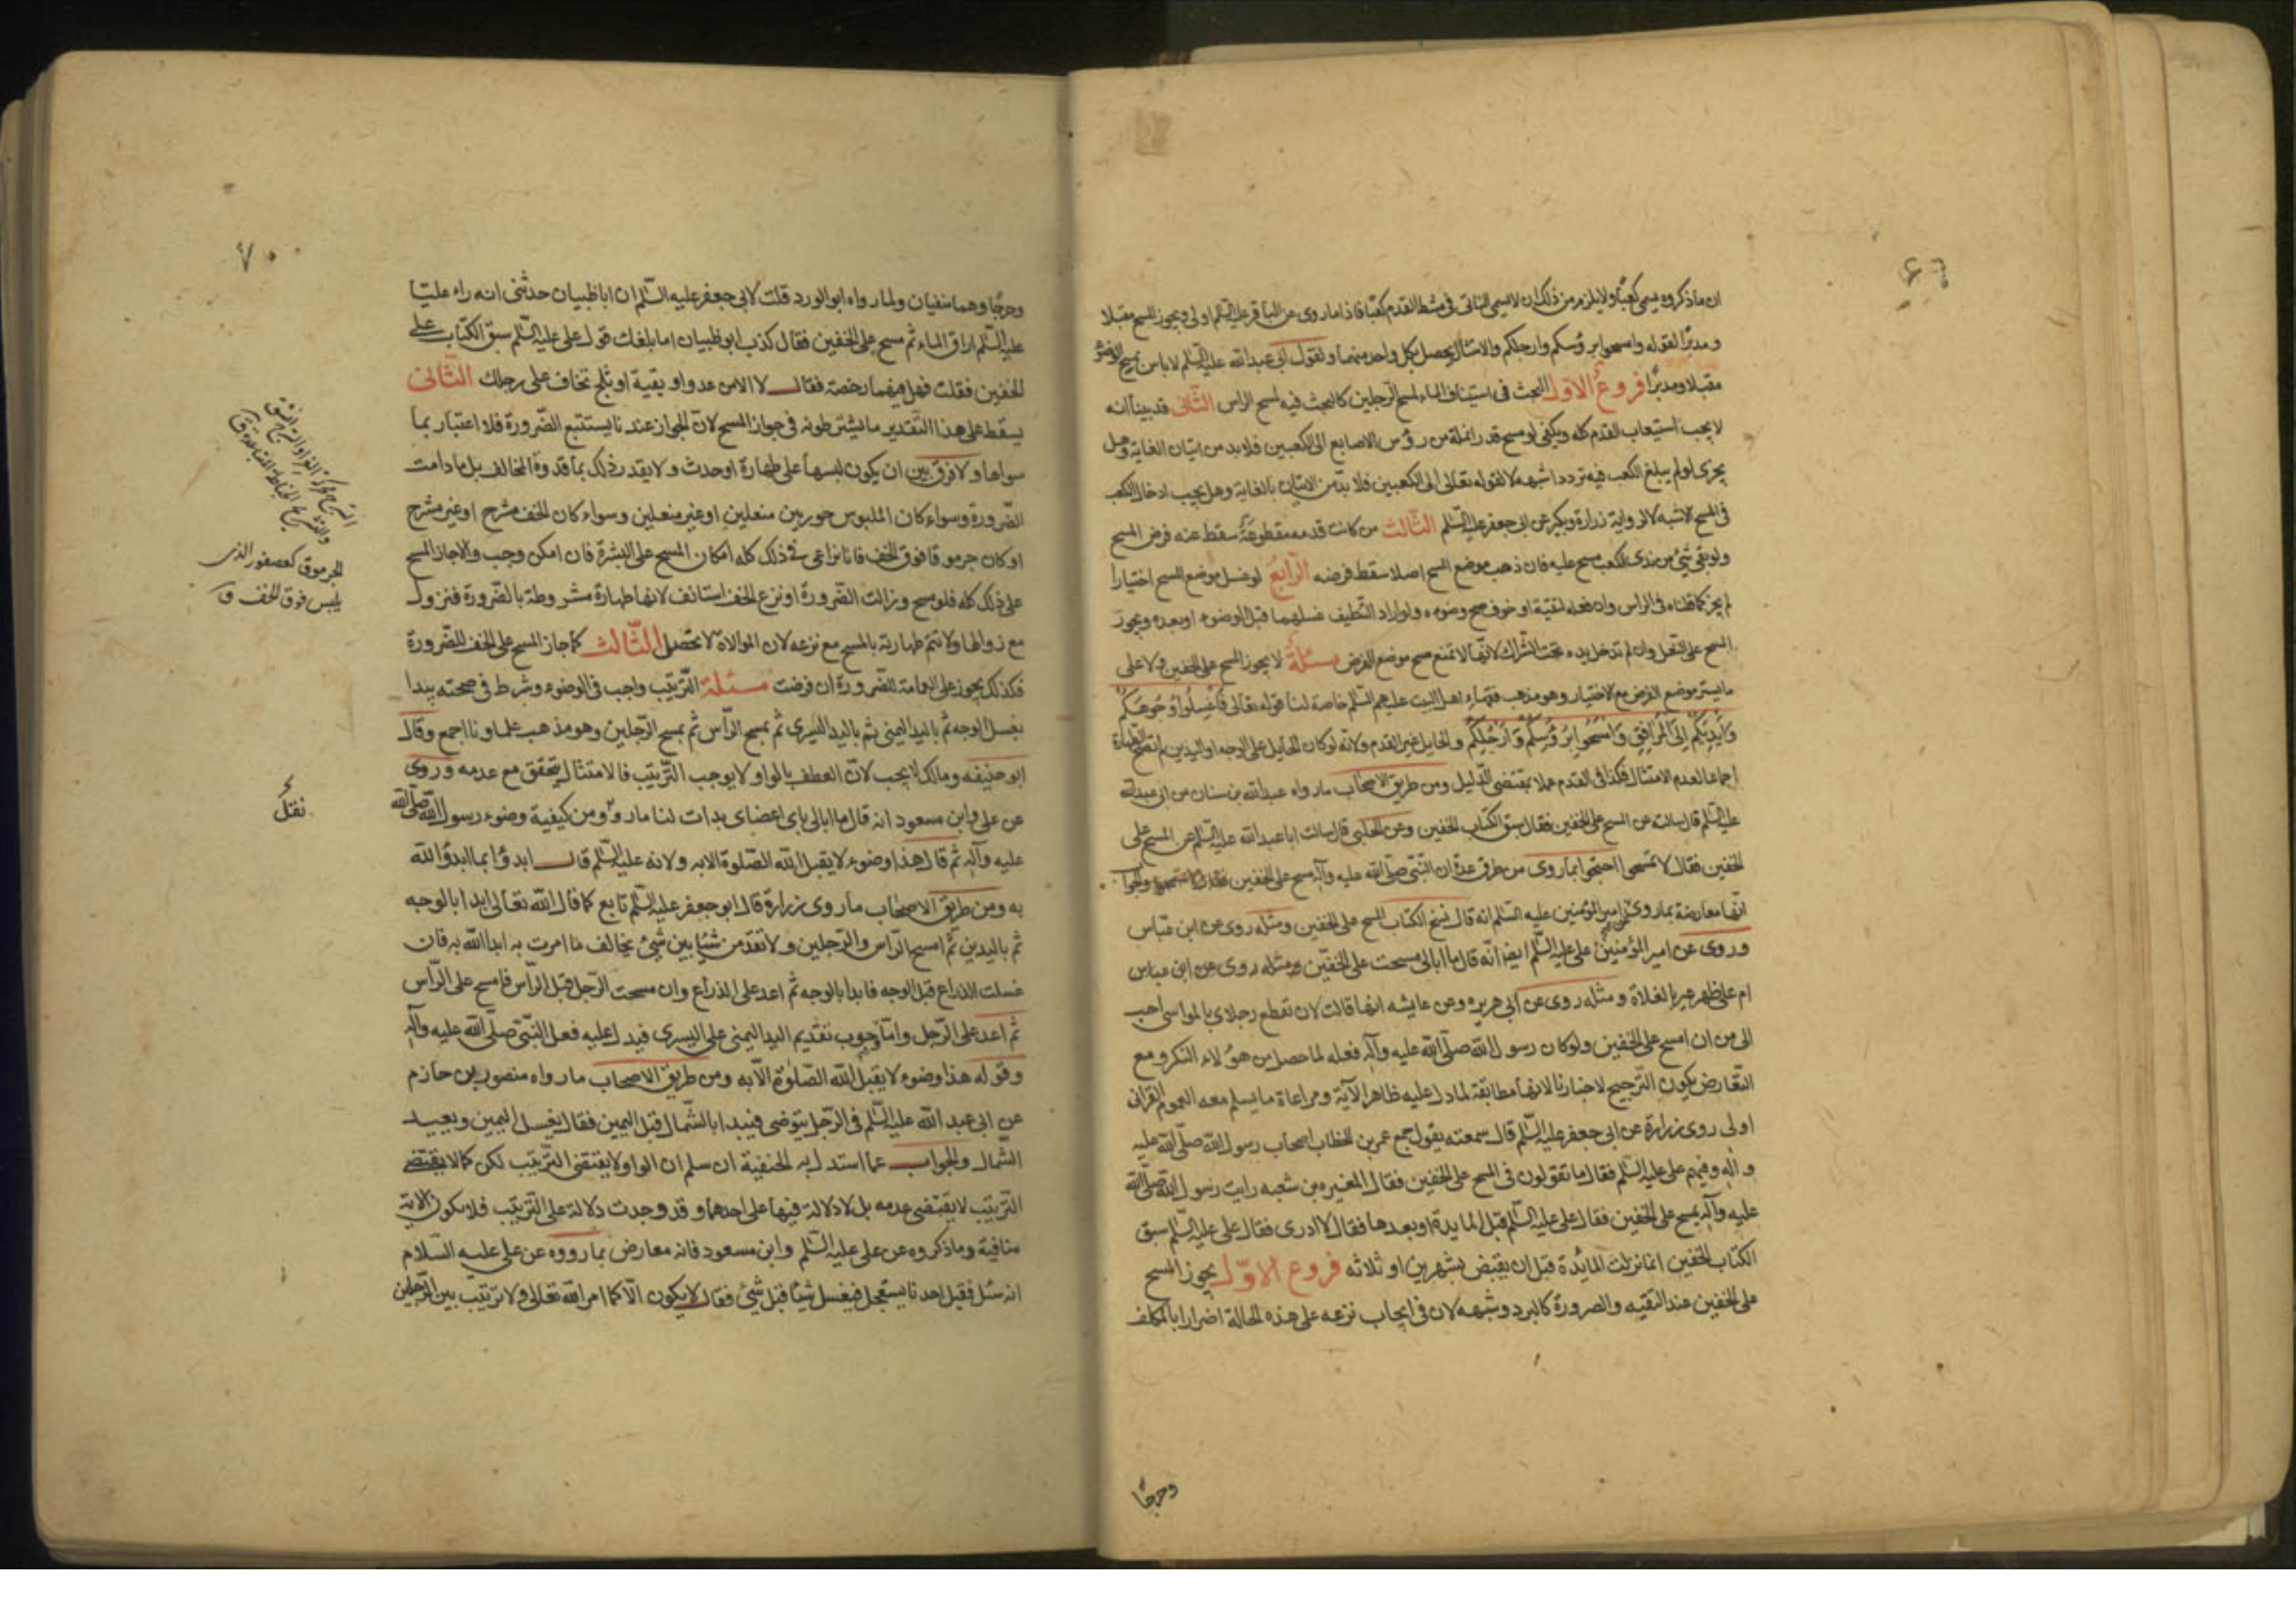 ٦٩
ان ما ذكروه يسمى كعبًا ولا يلزم من ذلك ان لا يسمى الناتى فى مشط القدم كعبًا فاذا ما روى عن الباقر عليه السلم اولى ويجوز المسح مقبلا
ومدبرًا لقوله وامسحوا برؤسكم وارجلكم والامتثال يحصل بكل واحد منهما ولقول ابى عبد الله عليه السلم لا باس بمسح الوضوء
مقبلا ومدبرًا فروع الاول البحث فى استيناف الماء لمسح الرجلين كالبحث فيه لمسح الراس الثانى قد بينا انه
لا يجب استيعاب القدم كله ويكفى لو مسح قدر انملة من رؤس الاصابع الى الكعبين فلا بد من اتيان الغاية وهل
يجزى لو لم يبلغ الكعب فيه تردد اشبهه لا لقوله تعالى الى الكعبين فلا بد من الاتيان بالغاية وهل يجب ادخال الكعب
فى المسح الاشبه لا لرواية زرارة وبكير عن ابى جعفر عليه السلم الثالث من كانت قدمه مقطوعة سقط عنه فرض المسح
ولو بقى شئ من الكعب مسح عليه فان ذهب موضع المسح اصلا سقط فرضه الرابع لو غسل موضع المسح اختيارا
لم يجز كما قلناه فى الراس وان فعله لتقية او خوف صح وضوءه ولو اراد التنظيف غسلهما قبل الوضوء او بعده ويجوز
المسح على النعل وان لم تدخل يده تحت الشراك لانها لا تمنع مسح موضع الفرض مسئلة لا يجوز المسح على الخفين ولا على
ما يستر موضع الفرض مع الاختيار وهو مذهب فقهاء اهل البيت عليهم السلم خاصة لنا قوله تعالى فاغسلوا وجوهكم
وايديكم الى المرافق وامسحوا برؤسكم وارجلكم والحايل غير القدم ولانه لو كان الحايل على الوجه او اليدين لم تصح الطهارة
اجماعا لعدم الامتثال فكذا فى القدم عملا بمقتضى الدليل ومن طريق الاصحاب ما رواه عبد الله بن سنان عن ابى عبد الله
عليه السلم قال سالته عن المسح على الخفين فقال سبق الكتاب الخفين وعن الحلبى قال سالت ابا عبد الله عليه السلم عن المسح على
الخفين فقال لا تمسح احتجوا بما روى من طرق عدة ان النبى صلى الله عليه وآله مسح على الخفين والجواب
انها معارضة بما روى عن امير المؤمنين عليه السلم انه قال نسخ الكتاب المسح على الخفين ومثله روى عن ابن عباس
وروى عن امير المؤمنين على عليه السلم ايضا انه قال ما ابالى مسحت على الخفين ومثله روى عن ابن عباس
ام على ظهر عير بالفلاة ومثله روى عن ابى هريره وعن عايشه انها قالت لان تقطع رجلاى بالمواسى احب
الى من ان امسح على الخفين ولو كان رسول الله صلى الله عليه وآله فعله لما حصل من هؤلاء النكر ومع
التعارض يكون الترجيح لاخبارنا لانها مطابقة لما دل عليه ظاهر الآية ومراعاة ما يسلم معه العموم القرانى
اولى روى زرارة عن ابى جعفر عليه السلم قال سمعته يقول جمع عمر بن الخطاب اصحاب رسول الله صلى الله عليه
وآله وفيهم على عليه السلم فقال ما تقولون فى المسح على الخفين فقال المغيره بن شعبه رايت رسول الله صلى الله
عليه وآله يمسح على الخفين فقال على عليه السلم قبل المايدة او بعدها فقال لا ادرى فقال على عليه السلم سبق
الكتاب الخفين انما نزلت المائدة قبل ان يقبض بشهرين او ثلاثه فروع الاول يجوز المسح
على الخفين عند التقيه والضرورة كالبرد وشبهه لان فى ايجاب نزعه على هذه الحالة اضرارا بالمكلف
وحرجًا
٧٠
وحرجًا وهما منفيان ولما رواه ابو الورد قلت لابى جعفر عليه السلم ان اباظبيان حدثنى انه راه عليا
عليه السلم اراق الماء ثم مسح على الخفين فقال كذب ابو ظبيان اما بلغك قول على عليه السلم سبق الكتاب على
الخفين فقلت فهل فيهما رخصة فقال لا الا من عدو او بقية او ثلج تخاف على رجلك الثانى
يسقط على هذا التقدير ما يشترطونه فى جواز المسح لان الجواز عندنا يستتبع الضرورة فلا اعتبار بما
سواها ولا فرق بين ان يكون لبسها على طهارة او حدث ولا يقدر ذلك بما قدره المخالف بل ما دامت
الضرورة وسواء كان الملبوس جوربين منعلين او غير منعلين وسواء كان الخف مشرج او غير مشرج
او كان جرموقا فوق الخف فانا نراعى فى ذلك كله امكان المسح على البشرة فان امكن وجب والا جاز المسح
على ذلك كله فلو مسح وزالت الضرورة او نزع الخف استانف لانها طهارة مشروطة بالضرورة فتزول
مع زوالها ولا تتم طهارته بالمسح مع نزعه لان الموالاة لا تحصل الثالث كما جاز المسح على الخف للضرورة
فكذلك يجوز على العمامة للضرورة ان فرضت مسئلة الترتيب واجب فى الوضوء وشرط فى صحته يبدا
بغسل الوجه ثم باليد اليمنى ثم باليد اليسرى ثم بمسح الراس ثم بمسح الرجلين وهو مذهب علماونا اجمع وقال
ابو حنيفه ومالك لا يجب لان العطف بالواو لا يوجب الترتيب فالامتثال يتحقق مع عدمه وروى
عن على وابن مسعود انه قال ما ابالى باى اعضاى بدات لنا ما روى ومن كيفية وضوء رسول الله صلى الله
عليه وآله ثم قال هذا وضوء لا يقبل الله الصلوة الا به ولانه عليه السلم قال ابدؤا بما ابدؤ الله
به ومن طريق الاصحاب ما روى زرارة قال ابو جعفر عليه السلم تابع كما قال الله تعالى ابدا بالوجه
ثم باليدين ثم امسح الراس والرجلين ولا تقدمن شيئا بين شئ تخالف ما امرت به ابدا الله به فان
غسلت الذراع قبل الوجه فابدا بالوجه ثم اعد على الذراع وان مسحت الرجل قبل الراس فامسح على الراس
ثم اعد على الرجل واما وجوب تقديم اليد اليمنى على اليسرى فيدل عليه فعل النبى صلى الله عليه وآله
وقوله هذا وضوء لا يقبل الله الصلوة الا به ومن طريق الاصحاب ما رواه منصور بن حازم
عن ابى عبد الله عليه السلم فى الرجل يتوضى فيبدا بالشمال قبل اليمين فقال يغسل اليمين ويعيد
الشمال والجواب عما استدل به الحنفية ان سلم ان الواو لا يقتضى الترتيب لكن كما لا يقتضى
الترتيب لا يقتضى عدمه بل لا دلالة فيها على احدهما وقد وجدت دلالة على الترتيب فلا يكون الاية
منافية وما ذكروه عن على عليه السلم وابن مسعود فانه معارض بما رووه عن على عليه السلام
انه سئل فقيل احدنا يستعجل فيغسل شيئا قبل شئ فقال لا يكون الا كما امر الله تعالى ولا ترتيب بين الرجلين
الجرموق كعصفور الذى
يلبس فوق الخف ق
نقتل